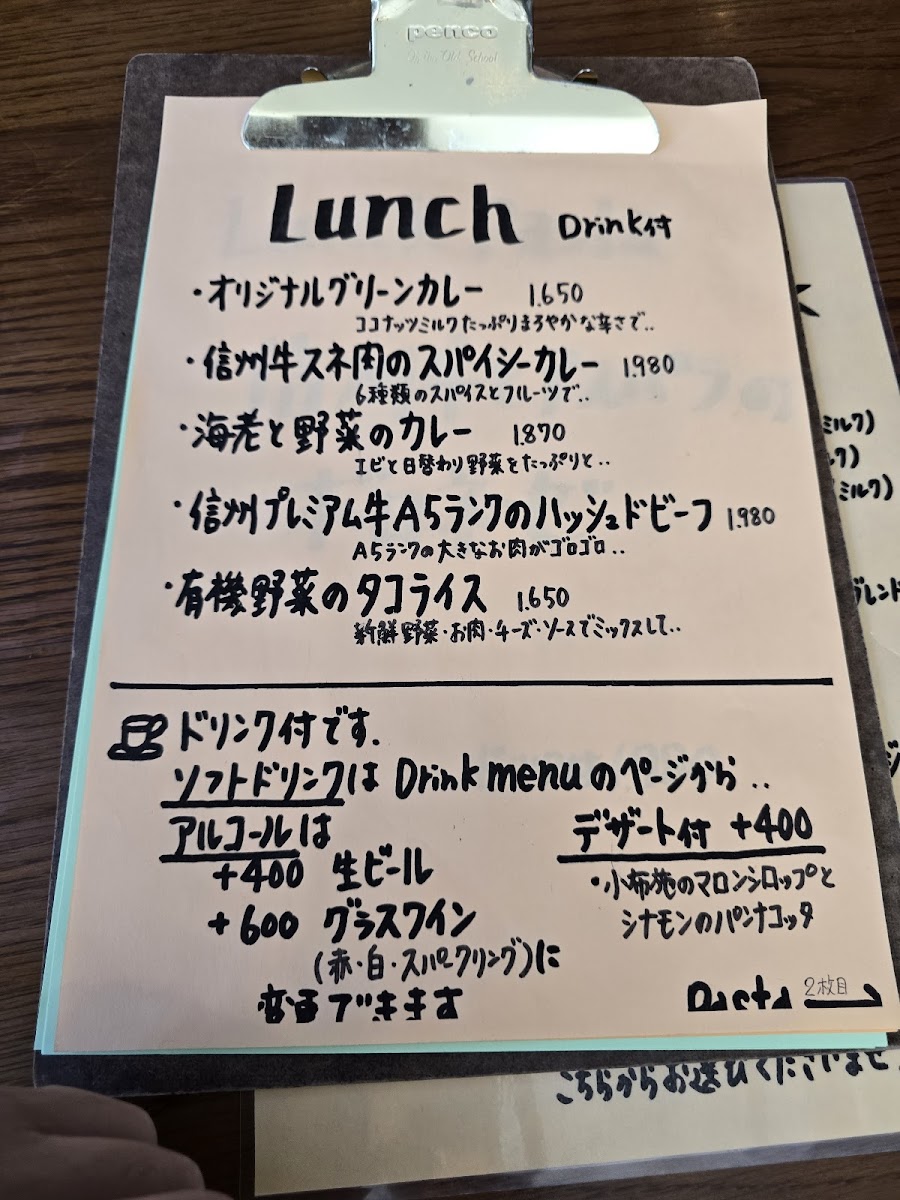 penco
Lunch Drink付
・オリジナルグリーンカレー 1.650
ココナッツミルクたっぷりまろやかな辛さで..
・信州牛スネ肉のスパイシーカレー 1.980
6種類のスパイスとフルーツで..
・海老と野菜のカレー 1.870
エビと日替わり野菜をたっぷりと..
・信州プレミアム牛A5ランクのハッシュドビーフ 1.980
A5ランクの大きなお肉がゴロゴロ..
・有機野菜のタコライス 1.650
新鮮野菜・お肉・チーズ・ソースでミックスして..
ドリンク付です.
ソフトドリンクは Drink menuのページから..
アルコールは
+400 生ビール
+600 グラスワイン
(赤・白・スパークリング)に
変更できます
デザート付 +400
・小布施のマロンシロップと
シナモンのパンナコッタ
Pasta 2枚目
ミルク)
ルク)
ミルク)
ブレンド
こちらからお選びくださいませ